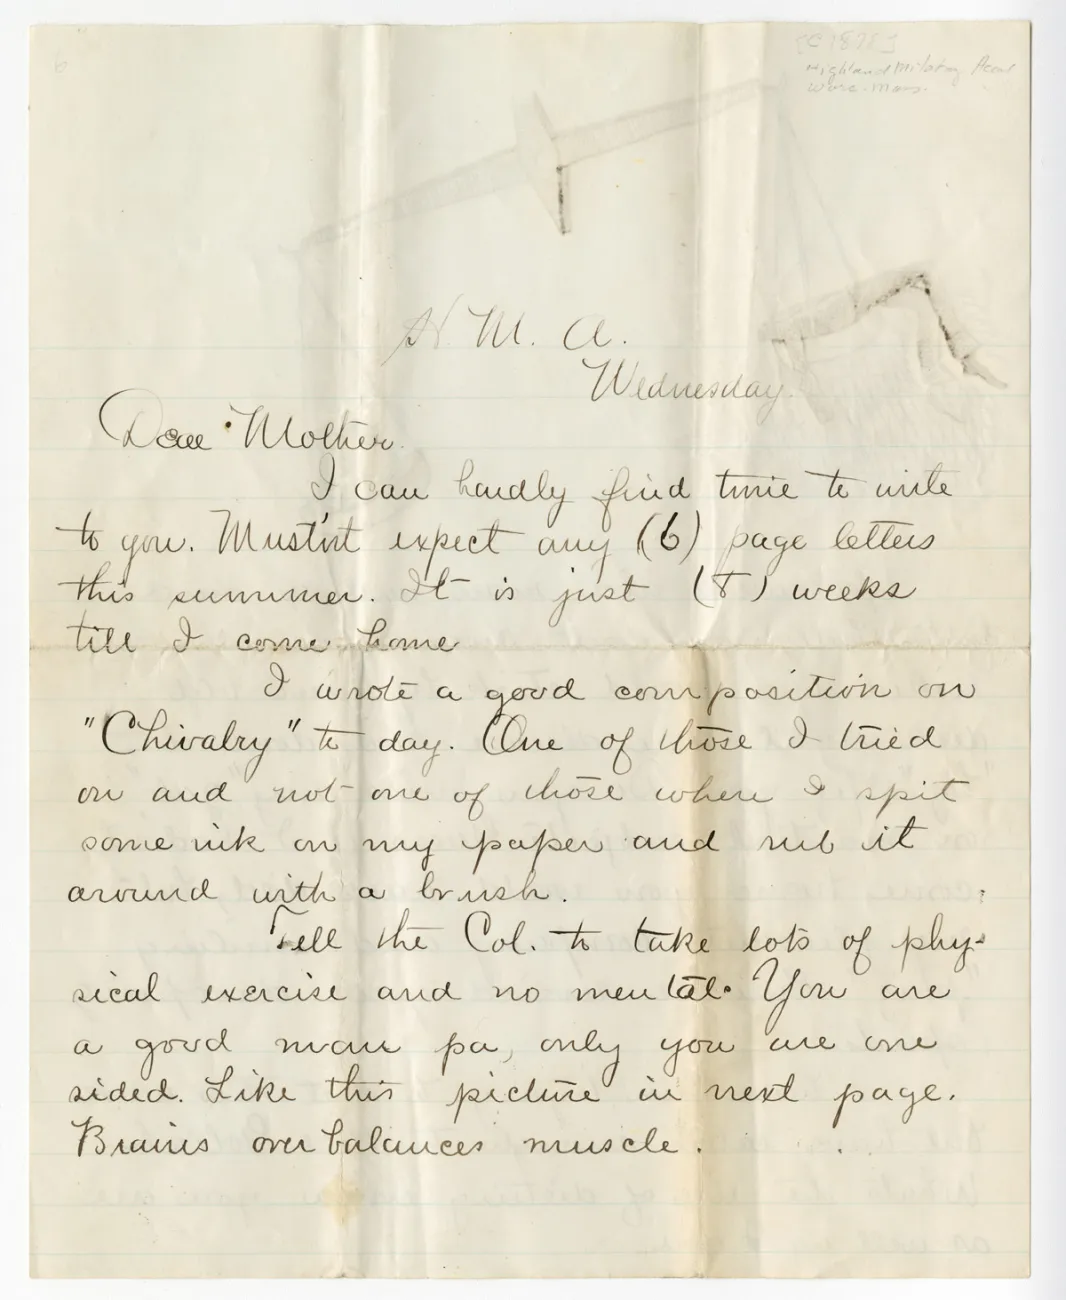 6
[C 1878]
Highland Military Acad
Worc. Mass.
H. M. A.
Wednesday.
Dear Mother.
I can hardly find time to write
to you. Must'nt expect any (6) page letters
this summer. It is just (8) weeks
till I come home
I wrote a good composition on
"Chivalry" to day. One of those I tried
on and not one of those where I spit
some ink on my paper and rub it
around with a brush.
Tell the Col. to take lots of phy-
sical exercise and no mental. You are
a good man pa, only you are one
sided. Like this picture in next page.
Brains over balances muscle.